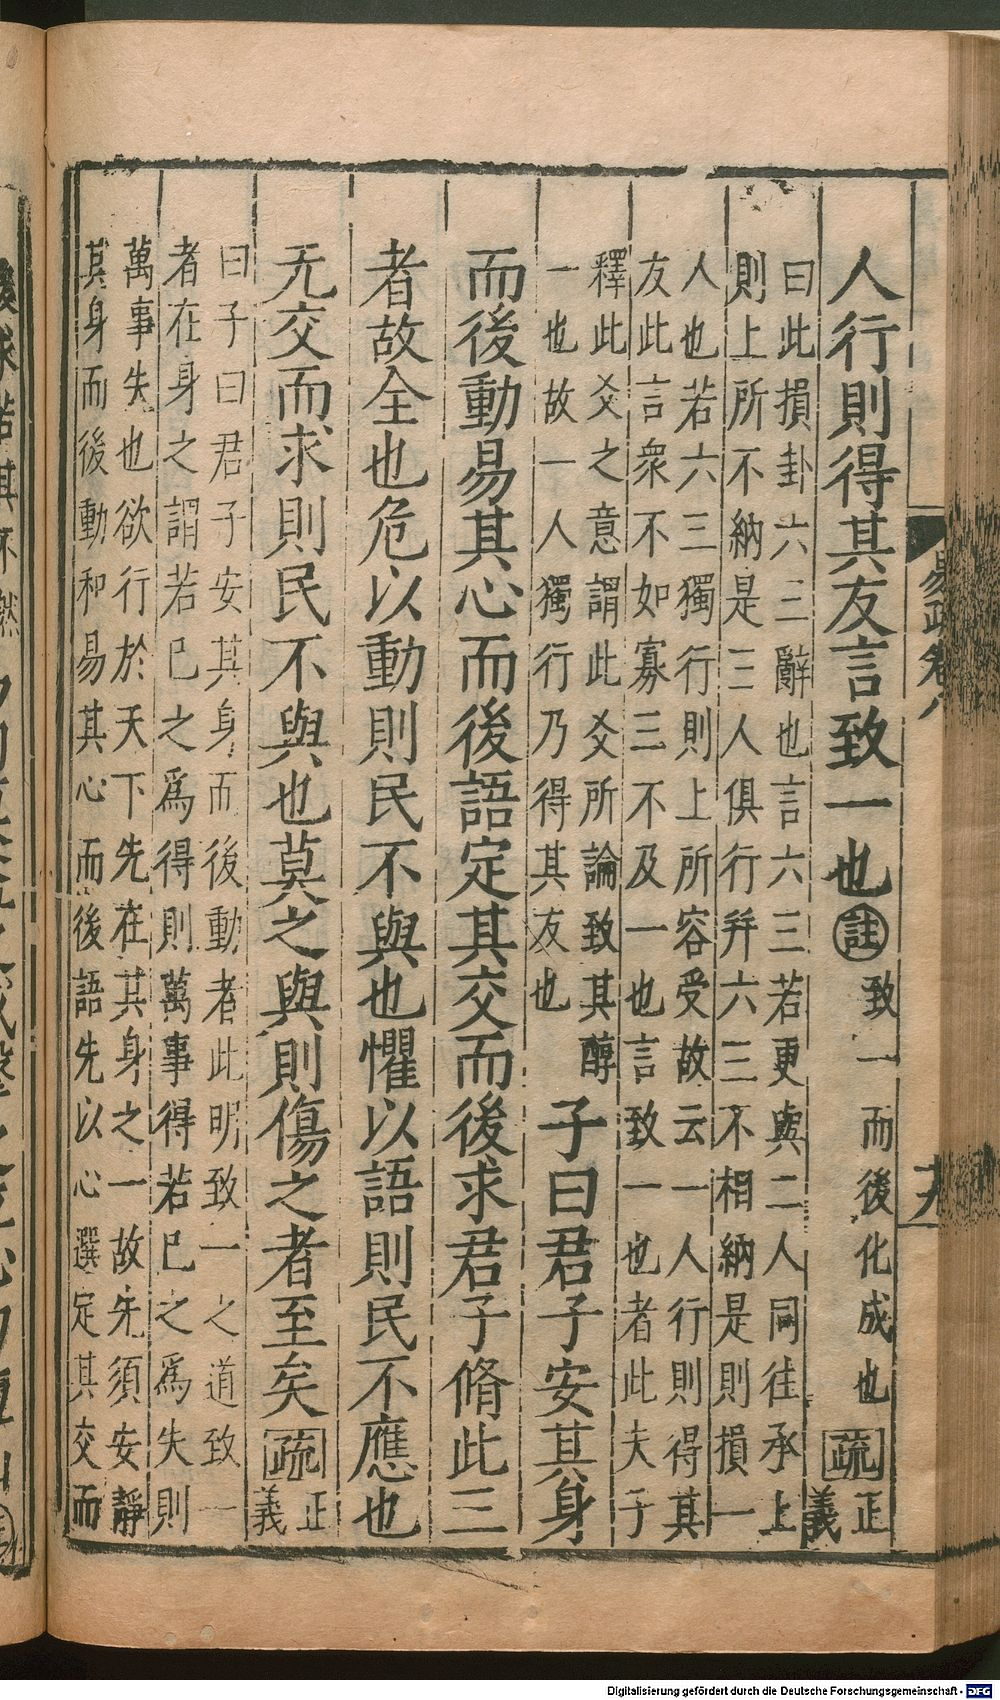 易疏卷八
十九
人行則得其友言致一也註致一而後化成也疏正義
曰此損卦六三辭也言六三若更與二人同往承上
則上所不納是三人俱行并六三不相納是則損一
人也若六三獨行則上所容受故云一人行則得其
友此言衆不如寡三不及一也言致一也者此夫子
釋此爻之意謂此爻所論致其醇
一也故一人獨行乃得其友也
子曰君子安其身
而後動易其心而後語定其交而後求君子脩此三
者故全也危以動則民不與也懼以語則民不應也
无交而求則民不與也莫之與則傷之者至矣疏正義
曰子曰君子安其身而後動者此明致一之道致一
者在身之謂若已之爲得則萬事得若已之爲失則
萬事失也欲行於天下先在其身之一故先須安靜
其身而後動和易其心而後語先以心選定其交而
Digitalisierung gefördert durch die Deutsche Forschungsgemeinschaft - DFG